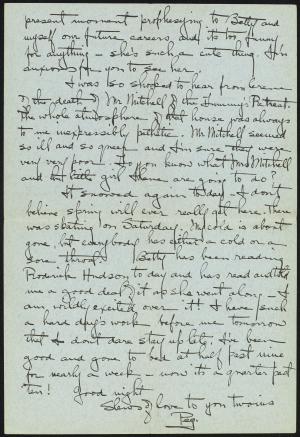 present moment prophesying to Betty and
myself our future careers and it's too funny
for anything - she's such a cute thing. I'm
anxious for you to see her.
I was so shocked to hear from
of the death of Mr Mitchell of the Retreat.
The whole atmosphere of that house was always
to me inexpressibly pathetic. Mr Mitchell seemed
so ill and so and I'm sure they were
very very poor. Do you know what Mrs Mitchell
and the little girl are going to do?
It snowed again today - I don't
believe spring will ever really get here. There
was skating on Saturday. My cold is about
gone, but everybody has either a cold or a
sore throat. Betty has been reading
Roderick Hudson today and has read
me a good deal of it as she went along - I
am wildly excited over it! I have such
a hard day's work before me tomorrow
that I don't dare stay up late. I've been
good and gone to bed at half past nine
for nearly a week - now it's a quarter past
ten! Good night
of love to you twains
Peg.